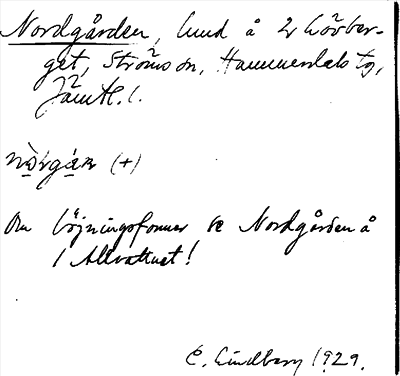 Nordgården, lund å 2 Lövber-
get, Ströms sn, Hammerdals tg,
Jämtl. l.
nòrgá̱ɴ (+)
Om böjningsformer se Nordgården å
1 Allvattnet!
E. Lindberg 1929.